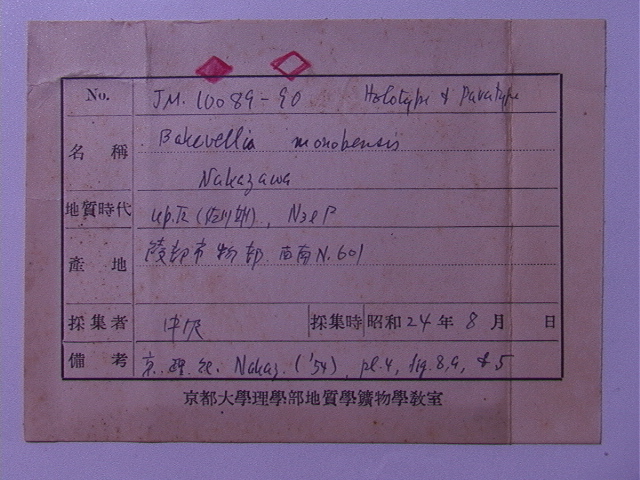 No. JM. 10089-90 Holotype & Paratype
名稱 Bakevellia monobensis
Nakazawa
地質時代 up. Tr (佐川期), N3eP
產地 綾部市 物部 西南 N. 601
採集者 中沢 採集時 昭和24年8月 日
備考 京. 理. 紀. Nakaz. ('54), pl.4, fig.8,9, & 5
京都大學理學部地質學鑛物學敎室